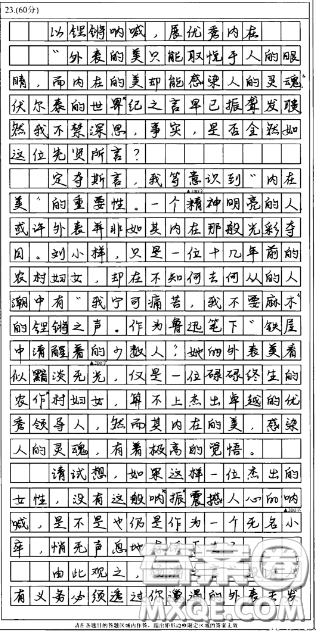 23.(60分)
以铿锵呐喊，展优秀内在
"外表的美只能取悦于人的眼
睛，而内在的美却能感染人的灵魂"
伏尔泰的世纪之言早已振聋发聩
然我不禁深思，事实，是否全然如
这位先贤所言？
定夺斯言，我等意识到"内在
美"的重要性。一个精神明亮的人
或许外表并非如其内在那般光彩夺
目。刘小样，只是一位十几年前的
农村妇女，却在不知何去何从的人
潮中有"我宁可痛苦，我不要麻木"
的铿锵之声。作为鲁迅笔下"铁屋
中清醒着的少数人"，她的外表美看
似黯淡无光，仅是一位碌碌终生的
农作村妇女，算不上杰出卓越的优
秀领导人，然而其内在的美，感染
人的灵魂，有着极高的觉悟。
请试想，如果这样一位杰出的
女性，没有这般呐振震撼人心的呐
喊，是不是也仍是作为一个无名小
卒，悄无声息地
由此观之，
有义务必须透过你遭遇的外表去发
答案圈